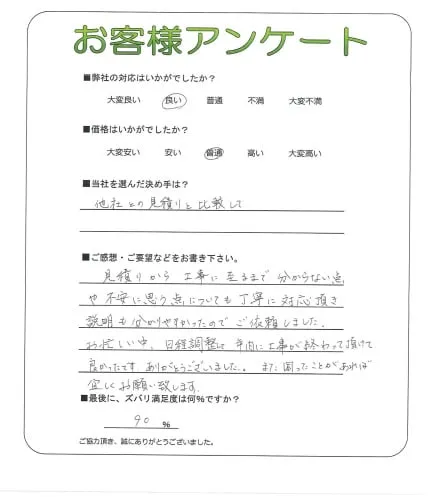 お客様アンケート
■弊社の対応はいかがでしたか?
大変良い 良い 普通 不満 大変不満
■価格はいかがでしたか?
大変安い 安い 普通 高い 大変高い
■当社を選んだ決め手は?
他社との見積りと比較して
■ご感想・ご要望などをお書き下さい。
見積りから工事に至るまで分からない点
や不安に思う点についても丁寧に対応頂き
説明も分かりやすかったのでご依頼しました。
お忙しい中、日程調整して年内に工事が終わって頂けて
良かったです。ありがとうございました。また困ったことがあれば
宜しくお願い致します。
■最後に、ズバリ満足度は何%ですか?
90 %
ご協力頂き、誠にありがとうございました。